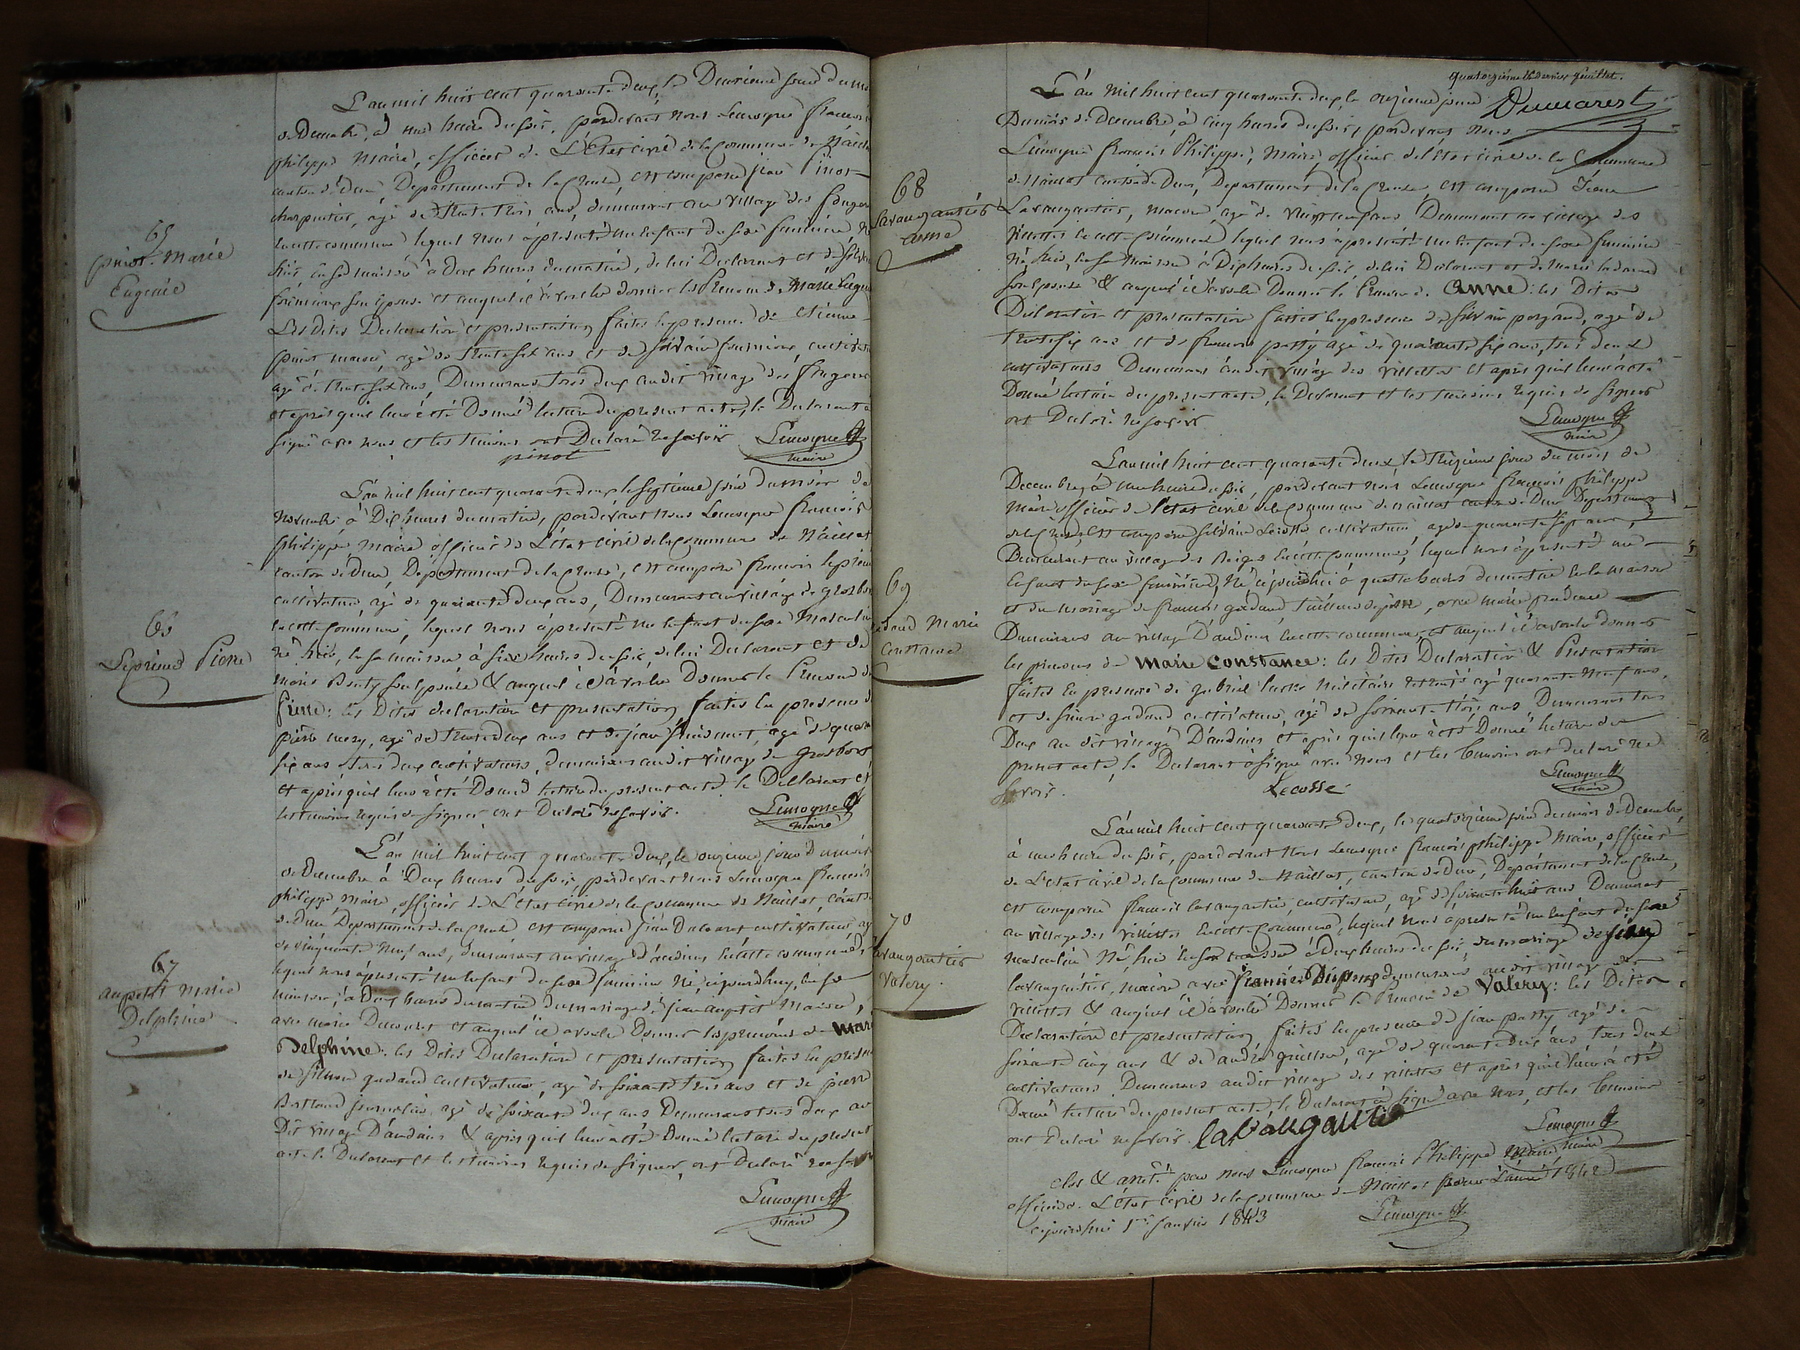 65
pinot Marie
Eugenie
L'an mil huit cent quarante deux, le Deuxieme jour du mois
de Decembre, à une heure du soir, pardevant nous Lemoyne francois
philippe Maire, officier de L'Etat civil de la Commune de Naillat
canton de dun, Departement de la Creuse, est comparu jean Pinot
charpentier, agé de trente trois ans, demeurant au village des fougeres
en cette commune lequel nous à presenté un Enfant du sexe feminin né
hier en sa maison à deux heures du matin, de lui Declarant et de
son Epouse et auquel il à voulu donner les Prenoms de Marie Eugenie
Les dites Declaration et presentation faites en presence de etienne
pinot macon, agé de trente six ans et de silvain fournioux, cultivateur
agé de trente six ans, Demeurant tous deux au dit village des fougeres
et après qu'il leur à été Donné lecture du present acte, le Declarant a
signé avec nous et les temoins ont Declaré ne savoir
pinot
Lemoyne
maire
66
Leprieur Pierre
L'an mil huit cent quarante deux le septieme jour du mois de
novembre à Dix heures du matin, pardevant nous Lemoyne francois
philippe Maire officier de L'etat civil de la Commune de Naillat
canton de Dun, Departement de la Creuse, est comparu francois leprieur
cultivateur, agé de quarante deux ans, Demeurant au village de grosbos
en cette Commune, lequel nous à presenté un Enfant du sexe Masculin
né hier, en sa maison à six heures du soir, de lui Declarant et de
marie son Epouse & auquel il à voulu Donner le Prenom de
Pierre: les Dites declaration et presentation faites en presence de
pierre agé de trente deux ans et de jean agé de quarante
six ans, tous deux cultivateurs, demeurans au dit village de Grosbos
et après qu'il leur à été Donné lecture du present acte le Declarant et
les temoins requis de signer ont Declaré ne savoir.
Lemoyne
maire
67
aupetit Marie
Delphine
L'an mil huit cent quarante deux, le onzieme jour du mois
de Decembre à Deux heures du soir, pardevant Nous Lemoyne francois
philippe Maire, officier de L'Etat civil de la commune de Naillat, canton
de Dun Departement de la Creuse est comparu jean Ducouret cultivateur agé
de cinquante neuf ans, demeurant au village d'andins en cette commune
lequel nous à presenté un Enfant du sexe feminin né, cejourdhuy, en sa
maison, à deux heures du matin du mariage de jean aupetit Macon,
avec marie Ducouret et auquel il à voulu Donner les prenoms de Marie
Delphine: les Dites Declaration et presentation faites en presence
de simon gadaud cultivateur, agé de soixante trois ans et de pierre
Bertrand journalier, agé de soixante deux ans Demeurans tous deux au
Dit village D'andins & après qu'il leur à été Donné lecture du present
acte le Declarant et les temoins requis de signer, ont Declaré ne savoir
Lemoyne
maire
quatorzieme & dernier feuillet.
Dumarest
68
Lavaugautier
anne
L'an mil huit cent quarante deux, le onzieme jour
Du mois de Decembre, à cinq heures du soir, pardevant nous
Lemoyne francois Philippe, Maire officier de l'etat civil de la Commune
de Naillat canton de Dun, Departement de la Creuse, est comparu
Lavaugautier, macon, agé de ans Demeurant au village des
villettes en cette Commune lequel nous à presenté un Enfant du sexe feminin
né hier, en sa Maison à Dix heures du soir de lui Declarant et de Marie
son Epouse & auquel il à voulu Donner le Prenom de anne: les Dites
Declaration et presentation faites en presence de silvain agé de
trente six ans et de francois agé de quarante six ans, tous deux
cultivateurs Demeurans au dit village des villettes et après qu'il leur à été
Donné lecture du present acte, le Declarant et les temoins requis de signer
ont Declaré ne savoir
Lemoyne
maire
69
gadaud Marie
Constance
L'an mil huit cent quarante deux, le treizieme jour du mois de
Decembre, à une heure du soir, pardevant nous Lemoyne francois philippe
Maire officier de l'etat civil de la commune de naillat canton de Dun Departement
de la Creuse est comparu silvain Lecosse cultivateur, agé de quarante sept ans,
Demeurant au village des en cette Commune, lequel nous à presenté un
Enfant du sexe feminin, né cejourdhui à quatre heures du matin en la maison
et du mariage de francois gadaud avec marie
Demeurans au village D'andins, en cette commune, et auquel il à voulu donner
les prenoms de Marie Constance: les Dites Declaration & Presentation
faites en presence de gabriel militaire retraité agé quarante neuf ans,
et de simon gadaud cultivateur, agé de soixante trois ans Demeurans tous
Deux au dit village D'andins et après qu'il leur à été Donné lecture du
present acte, le Declarant à signé avec Nous et les temoins ont declaré ne
savoir.
Lecosse
Lemoyne
maire
70
Lavaugautier
Valery.
L'an mil huit cent quarante deux, le quatorzieme jour du mois de Decembre,
à une heure du soir, pardevant Nous Lemoyne francois philippe Maire, officier
de L'etat civil de la Commune de Naillat, canton de Dun, Departement de la Creuse,
est comparu francois lavaugautier, cultivateur, agé de soixante huit ans Demeurant
au village des villettes en cette Commune, lequel nous à presenté un Enfant du sexe
masculin né hier en sa maison à deux heures du soir du mariage de jean
lavaugautier, macon avec demeurans au dit village des
villettes & auquel il à voulu Donner le Prenom de Valerey: les Dites
Declaration et presentation faites en presence de jean agé de
soixante cinq ans & de andré agé de quarante deux ans tous deux
cultivateurs Demeurans au dit village des villettes et après qu'il leur à été
Donné lecture du present acte, le Declarant à signé avec nous, et les temoins
ont declaré ne savoir.
lavaugautier
Lemoyne
maire
clos & arrêté par nous Lemoyne francois Philippe Maire
officier de L'etat civil de la Commune de Naillat pour L'année 1842
cejourdhui 1er janvier 1843
Lemoyne